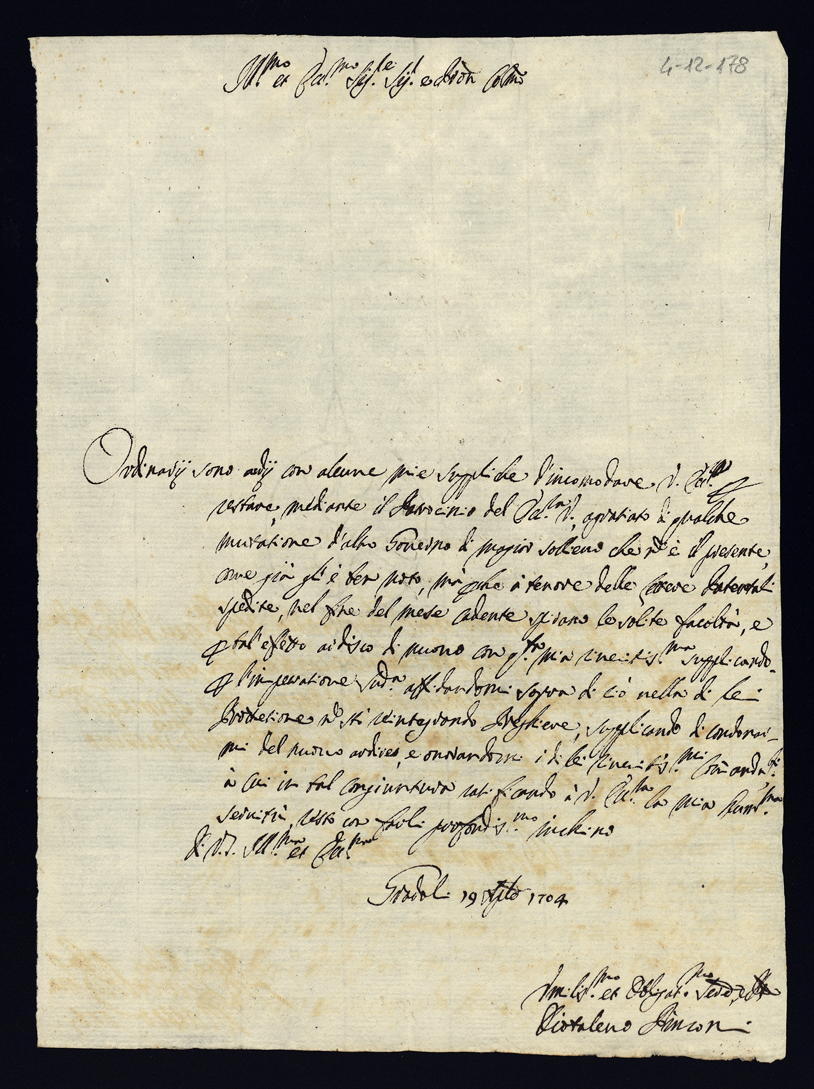 4-12-178
Ill.mo et Ecc.mo Sig.re Sig.e e Pron Colmo
Ordinarij sono ardij con alcune mie suppliche d'incomodare V. Ecc.za
restare, mediante il Patrocinio del Ecc.za V., agratiato di qualche
mutatione d'altro Governo di magior sollieuo che nō è il presente,
come già gli è ben noto, mà che à tenore delle breue Patentali
spedite, nel fine del mese cadente spirano le solite facoltà, e
tal'effetto ardisco di nuouo con q.sta mia riueritis.ma supplicando
l'impetratione sud.a affidandomi sopra di ciò nella di lei
Protetione nō sti
Preghiere, supplicando di condonar-
mi del nuouo ardire, e onorandomi i di lei riueritis.mi Comandi
à cui in tal congiuntura ratificando à V. Ecc.za la mia hum.ma
seruitù, resto con profondis.mo inchino
Di V.S. Ill.ma et Ecc.ma
Gradoli 19 1704
Vmilis.mo et Obligat.mo